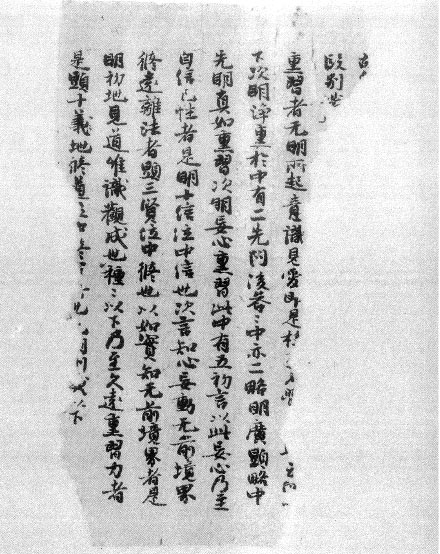 別
熏習者无明所起意識見愛即是枝
下次明淨熏於中有二先問後答〻中亦二略明廣顯略中
先明真如熏習次明妄心熏習此中有五初言以此妄心乃至
自信己性者是明十信位中信也次言知心妄動无前境界
修遠離法者顯三賢位中修也以如實知无前境界者是
明初地見道唯識觀成也種〻以下乃至久遠熏習力者
是顯十義地修道 以下